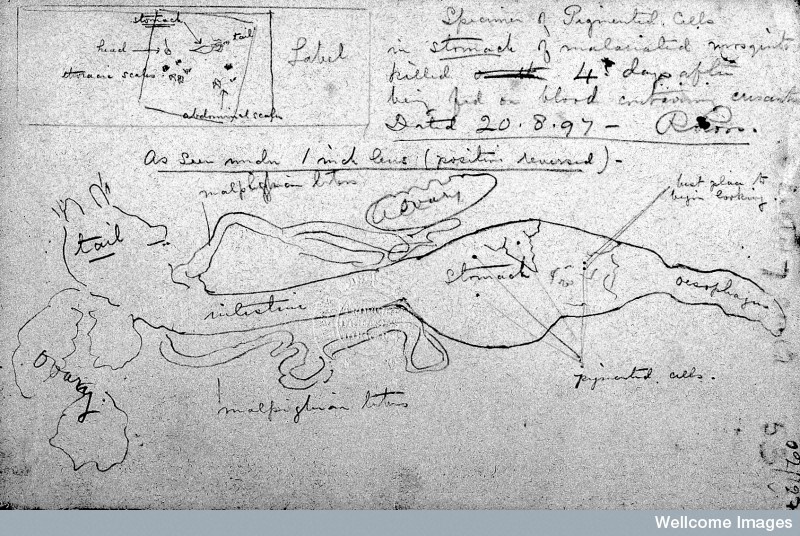 stomach
head
tail
thoracic scales
abdominal scales
Label
Specimen of Pigmented. Cells
in stomach of malariated mosquito
killed 4 days after
being fed on blood containing crescents
Datd 20.8.97 - R. Ross.
As seen under 1 inch lens (position reversed) -
malpighian
ovary
best place to
begin looking.
tail
stomach
oesophagus
intestine
ovary
malpighian
pigmented. cells.
Wellcome Images